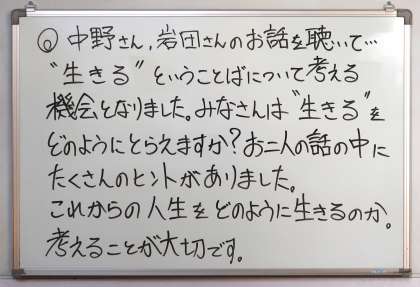 ◎ 中野さん,岩田さんのお話を聴いて…
"生きる" ということばについて考える
機会となりました。みなさんは"生きる"を
どのようにとらえますか?お二人の話の中に
たくさんのヒントがありました。
これからの人生をどのように生きるのか。
考えることが大切です。